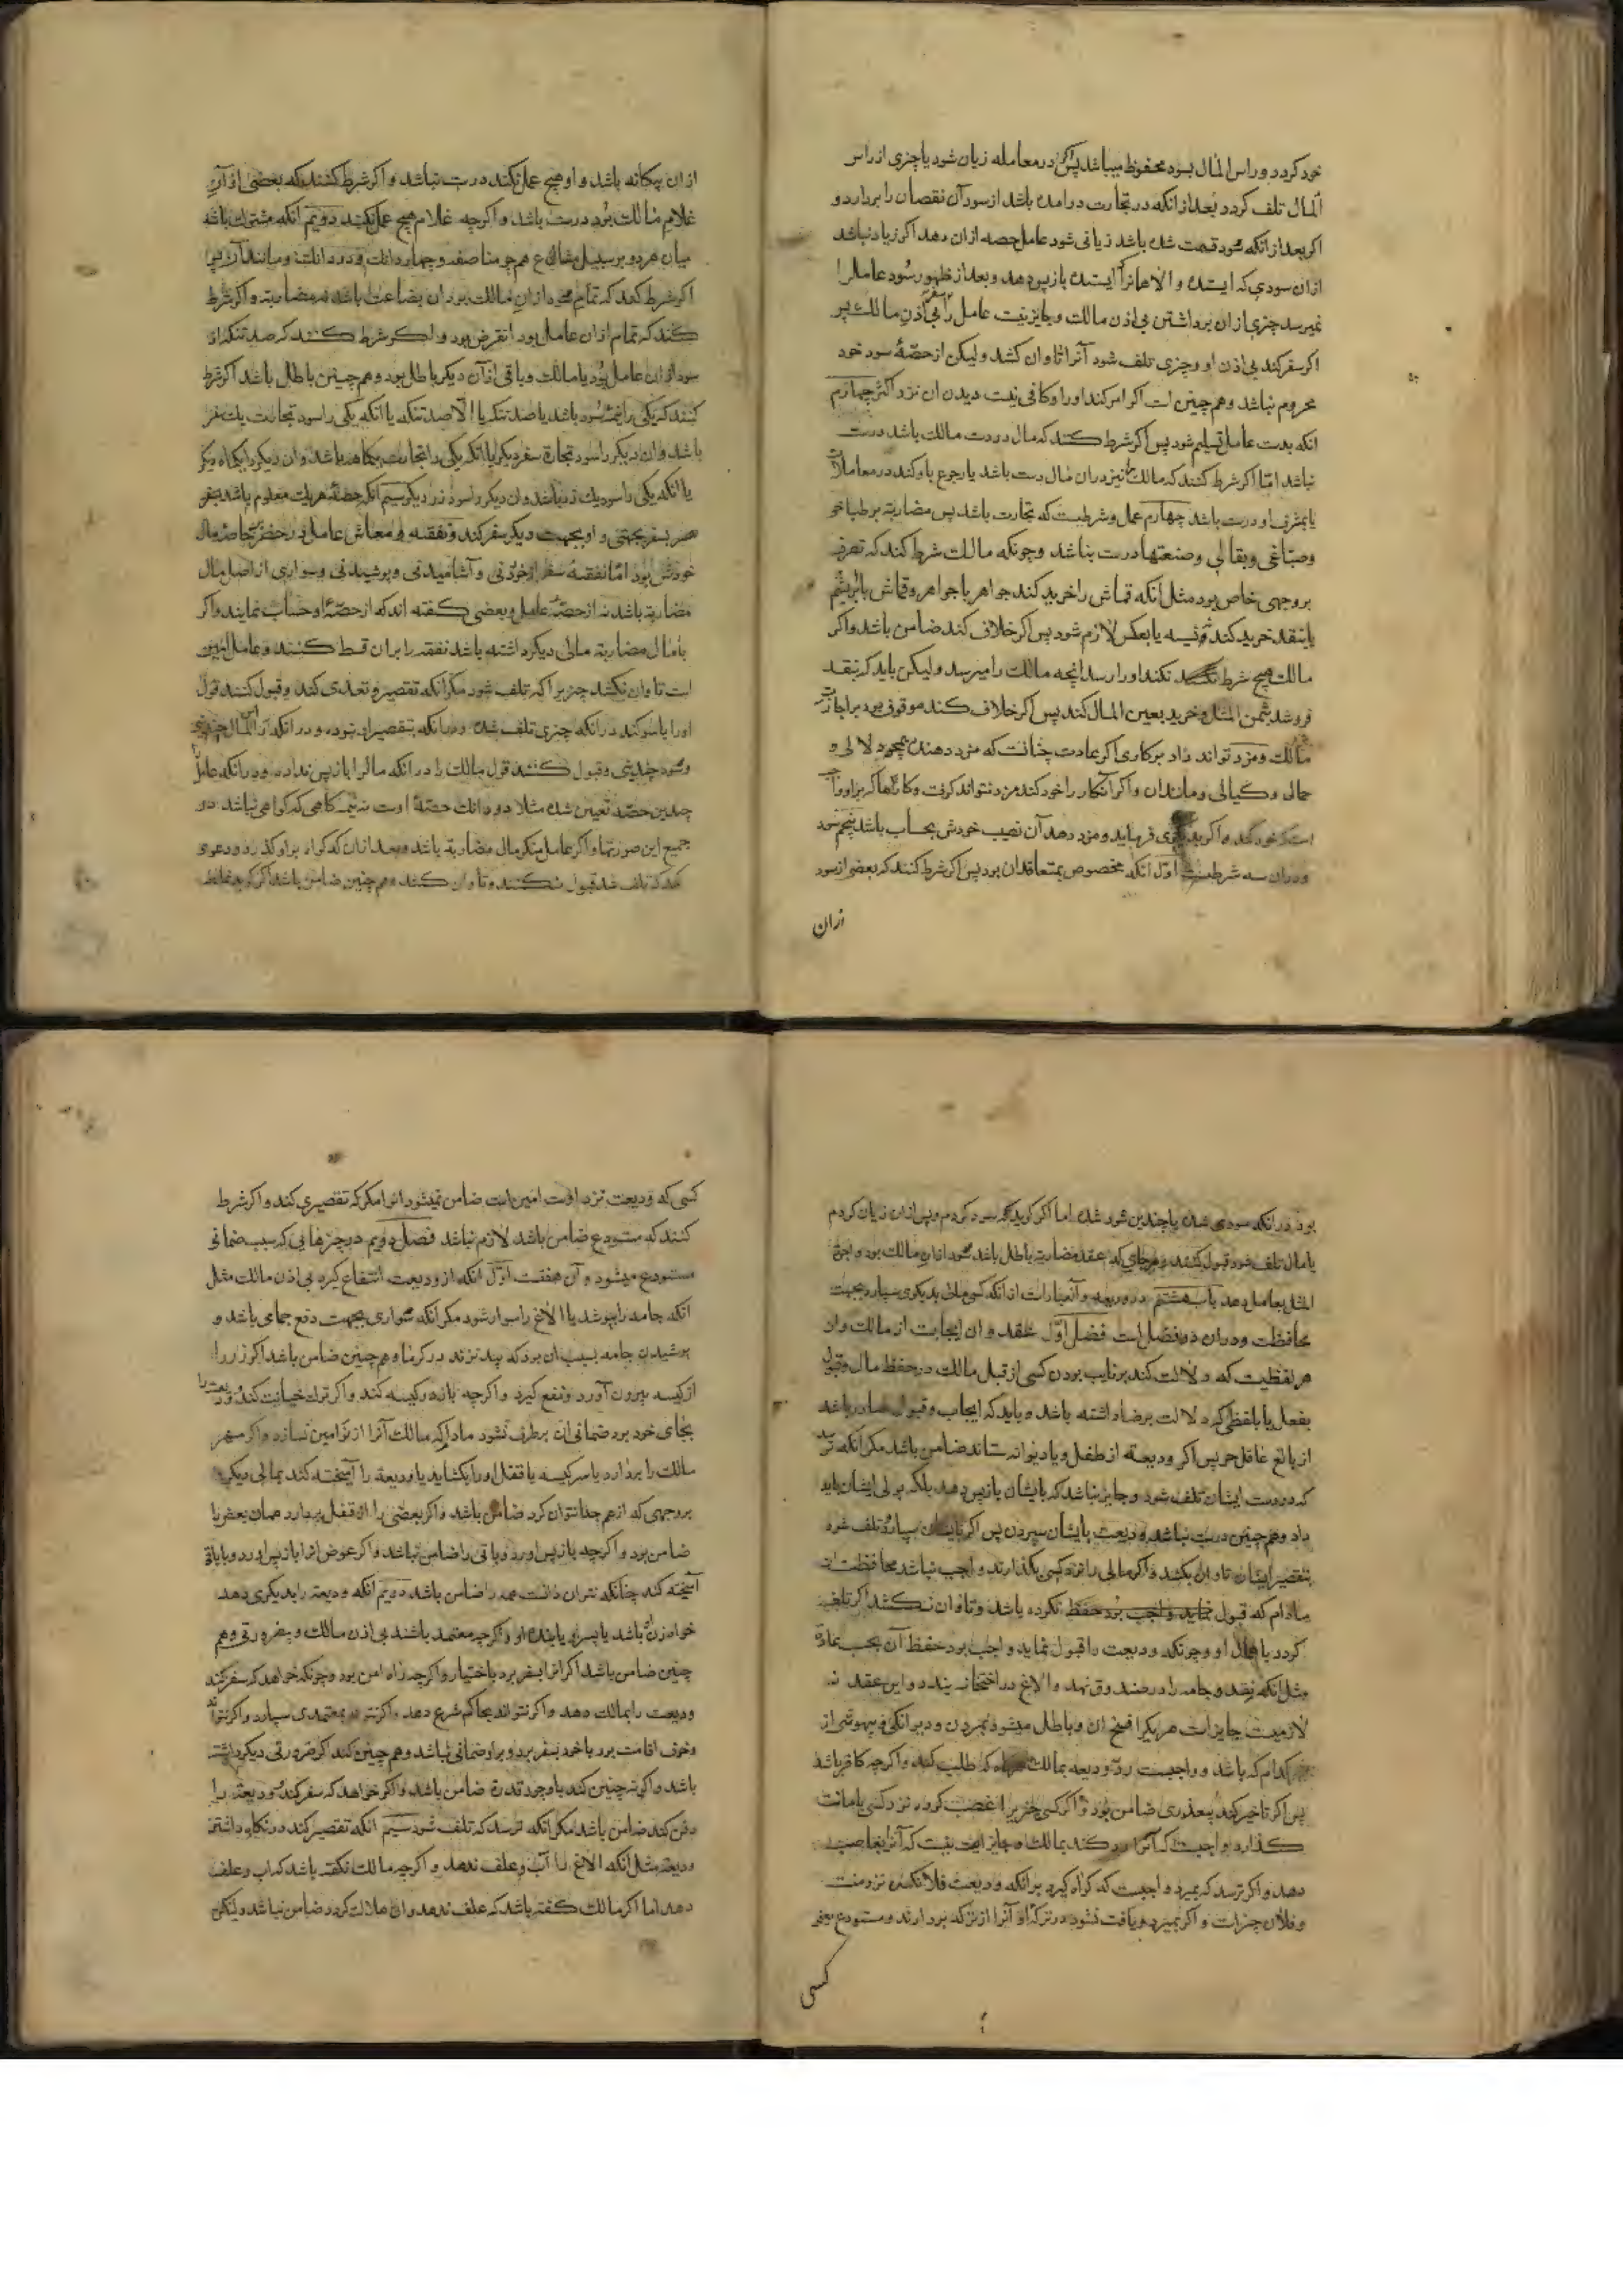 خود کردد و راس المال بود محفوظ میباشد پس اکر در معامله زیان شود یا چیزی از راس
المال تلف کردد بعد از انکه در تجارت در امده باشد از سود آن نقصان را بردارد و
اکر بعد از انکه سود قسمت شده باشد زیانی شود عامل حصه ازان دهد اکر زیاد نباشد
ازان سودی که ایستده و الا همانرا که ایستده باز پس دهد و بعد از ظهور سود عامل را
نمیرسد چیزی ازان برداشتن بی اذن مالک و جایز نیست عامل را سفر بی اذن مالک پس
اکر سفر کند بی اذن او و چیزی تلف شود آنرا تاوان کشد و لیکن از حصۀ سود خود
محروم نباشد و هم چنین است اکر امر کند او را و کافی نیست دیدن ان نزد اکثر چهارم
انکه بدست عامل تسلیم شود پس اکر شرط کنند که مال در دست مالک باشد درست
نباشد امّا اکر شرط کنند که مالک را نیز دران مال دست باشد یا رجوع باو کند در معاملات
یا بمشرف او درست باشد چهارم عمل و شرطست که تجارت باشد پس مضاربة بر طباخی
و صبّاغی و بقالی و صنعتها درست نباشد و چونکه مالک شرط کند که تصرف
بر وجهی خاص بود مثل انکه قماش را خرید کند جواهر یا جواهر و قماش یا ابریشم
یا بنقد خرید کند و نسیه یا بعکس لازم شود پس اکر خلاف کند ضامن باشد و اکر
مالک هیچ شرط نکند او را رسد انچه مالک را میرسد و لیکن باید که بنقد
فروشد بثمن المثل و خرید بعین المال کند پس اکر خلاف کند موقوف بود بر اجازت
مالک و مزد تواند داد بر کاری اکر بعادت چنانست که مزد دهند همچو دلالی و
حمالی و کیالی و مانند ان و اکر آنکار را خود کند مزد نتواند کرفت و کارها که بر او واجب
است که خود کند و اکر بدیکری فرماید و مزد دهد آن نصیب خودش بحساب باشد پنجم سود
و دران سه شرطست اوّل انکه مخصوص بمتعاقدان بود پس اکر شرط کنند که بعضی از سود
ازان
ازان بیکانه باشد و او هیچ عمل نکند درست نباشد و اکر شرط کنند که بعضی ازان
غلام مالک بود درست باشد و اکرچه غلام هیچ عمل نکند دویم انکه مشترک باشد
میان هر دو بر سبیل مشاع هم چو مناصفه و چهار دانک و دو دانک و مانند آن پس
اکر شرط کند که تمام سود ازان مالک بود ان بضاعت باشد نه مضاربة و اکر شرط
کنند که تمام ازان عامل بود انقرض بود و اکر شرط کنند که صد تنکه از
سود ازان عامل بود یا مالک و باقی ازان دیکر باطل بود و هم چنین باطل باشد اکر شرط
کنند که یکی را نیمۀ سود باشد یا صد تنکه یا الا صد تنکه یا انکه یکی را سود تجارت یک سفر
باشد و ان دیکر را سود تجارة سفر دیکر یا انکه یکی را تجارت یکماهه باشد و ان دیکر را یکماه دیکر
یا انکه یکی را سود یک زر باشد و ان دیکر را سود زر دیکر سیم انکه حصۀ هر یک معلوم باشد بسفر
بجهتی و او بجهت دیکر سفر کند و نفقه و معاش عامل در حضر بخاصه مال
خودش بود امّا نفقۀ سفر از خوردنی و آشامیدنی و پوشیدنی و سواری از اصل مال
مضاربة باشد نه از حصۀ عامل و بعضی کفته اند که از حصۀ او حساب نمایند و اکر
با مال مضاربة مالی دیکر داشته باشد نفقه را بران قسط کنند و عامل امین
است تاوان نکشد چیزیرا که تلف شود مکر انکه تقصیر و تعدّی کند و قبول کنند قول
او را با سوکند در انکه چیزی تلف شده و در انکه بتقصیر او نبوده و در انکه راس المال چندینی
و سود چندینی و قبول کنند قول مالک را در انکه مال را باز پس نداده و در انکه عامل را
چندین حصّه تعیین شده مثلا دو دانک حصّۀ اوست نه نیمه کاهی که کواهی نباشد در
جمیع این صورتها و اکر عامل منکر مال مضاربة باشد و بعد ازان که کواه براو کذرد و دعوی
کند که تلف شد قبول نکنند و تاوان کنند و هم چنین ضامن باشد اکر کوید غلط
بود در انکه سودی شده یا چندین سود شده اما اکر کوید که سود کردم و پس ازان زیان کردم
یا مال تلف شود قبول کنند و هر جای که عقد مضاربة باطل باشد سود ازان مالک بود و اجرة
المثل بعامل دهد باب هشتم در ودیعه و آنعبارتست از انکه کسی مالی بدیکری سپارد بجهت
محافظت و دران دو فصل است فصل اوّل عقد و ان ایجابست از مالک و ان
هر لفظیست که دلالت کند بر نایب بودن کسی از قبل مالک در حفظ مال و قبول
بفعل یا بلفظی که دلالت بر رضا داشته باشد و باید که ایجاب و قبول صادر باشد
از بالغ عاقل حر پس اکر ودیعة از طفل و یا دیوانه ستاند ضامن باشد مکر انکه ترسد
که در دست ایشان تلف شود و جایز نباشد که بایشان باز پس دهد بلکه بولی ایشان باید
داد و هم چنین درست نباشد ودیعت بایشان سپردن پس اکر بایشان سپارد و تلف شود
بتقصیر ایشان تاوان نکشند و اکر مالی را نزد کسی بکذارند واجب نباشد محافظت ان
مادام که قبول ننماید و اکر حفظ نکرده باشد و تاوان نکشد اکر تلف
کردد با اهمال او و چونکه ودیعت را قبول نماید واجب بود حفظ آن بحسب عادة
مثل انکه نقد و جامه را در صندوق نهد و الاغ در اختخانه بندد و این عقد نه
لازمست جایز است هر یکرا فسخ ان و باطل میشود بمردن و دیوانکی و بیهوشی از
هر کدام که باشد و واجبست ردّ ودیعه بمالک هرکاه که طلب کند و اکرچه کافر باشد
پس اکر تاخیر کند بیعذری ضامن بود و اکر کسی چیزیرا غصب کرده نزد کسی بامانت
کذارد واجبست که آنرا رد کند بمالک و جایز نیست که آنرا بغاصب
دهد و اکر ترسد که بمیرد واجبست که کواه کیرد بر انکه ودیعت فلانکس نزد منست
و فلان چیز است و اکر بمیرد و یافت نشود در ترکۀ او آنرا از ترکه بر دارند و مستودع یعنی
کسی
کسی که ودیعت نزد اوست امین است ضامن نمیشود انرا مکر که تقصیری کند و اکر شرط
کنند که مستودع ضامن باشد لازم نباشد فصل دویم در چیزهایی که سبب ضمان
مستودع میشود و آن هفتست اوّل انکه از ودیعت انتفاع کیرد بی اذن مالک مثل
انکه جامه را بپوشد یا الاغ را سوار شود مکر انکه سواری بجهت دفع جماحی باشد و
پوشیدن جامه بسبب ان بود که بید نزند در کرما و هم چنین ضامن باشد اکر زر را
از کیسه بیرون آورد و نفع کیرد و اکرچه باز در کیسه کند و اکر ترک خیانت کند و ودیعت را
بجای خود برد ضمانی ان برطرف نشود مادام که مالک آنرا از نو امین نسازد و اکر مهر
مالک را بردارد یا سر کیسه یا قفل او را بکشاید یا ودیعة را آمیخته کند بمالی دیکر
بر وجهی که ازهم جدا نتوان کرد ضامن باشد و اکر بعضی را ازان قفل بردارد همان بعض را
ضامن بود و اکرچه باز پس اورد و باقی را ضامن نباشد و اکر عوض انرا باز پس اورد و با باقی
آمیخته کند چنانکه نتوان دانست همه را ضامن باشد دویم انکه ودیعة را بدیکری دهد
خواه زن باشد یا پسر و یا بنده او و اکرچه معتمد باشند بی اذن مالک و بیضرورتی و هم
چنین ضامن باشد اکر انرا بسفر برد باختیار و اکرچه راه امن بود و چونکه خواهد که سفر کند
ودیعت را بمالک دهد و اکر نتواند بحاکم شرع دهد و اکر نتواند بمعتمدی سپارد و اکر نتواند
و خوف اقامت برد با خود بسفر برد و بر او ضمانی نباشد و هم چنین کند اکر ضرورتی دیکر داشته
باشد و اکر نه چنین کند با وجود قدرة ضامن باشد و اکر خواهد که سفر کند و ودیعة را
دفن کند ضامن باشد مکر انکه ترسد که تلف شود سیم انکه تقصیر کند در نکاه داشتن
ودیعة مثل انکه الاغ را آب و علف ندهد و اکرچه مالک نکفته باشد که اب و علف
دهد اما اکر مالک کفته باشد که علف ندهد و ان هلاک کردد ضامن نباشد و لیکن